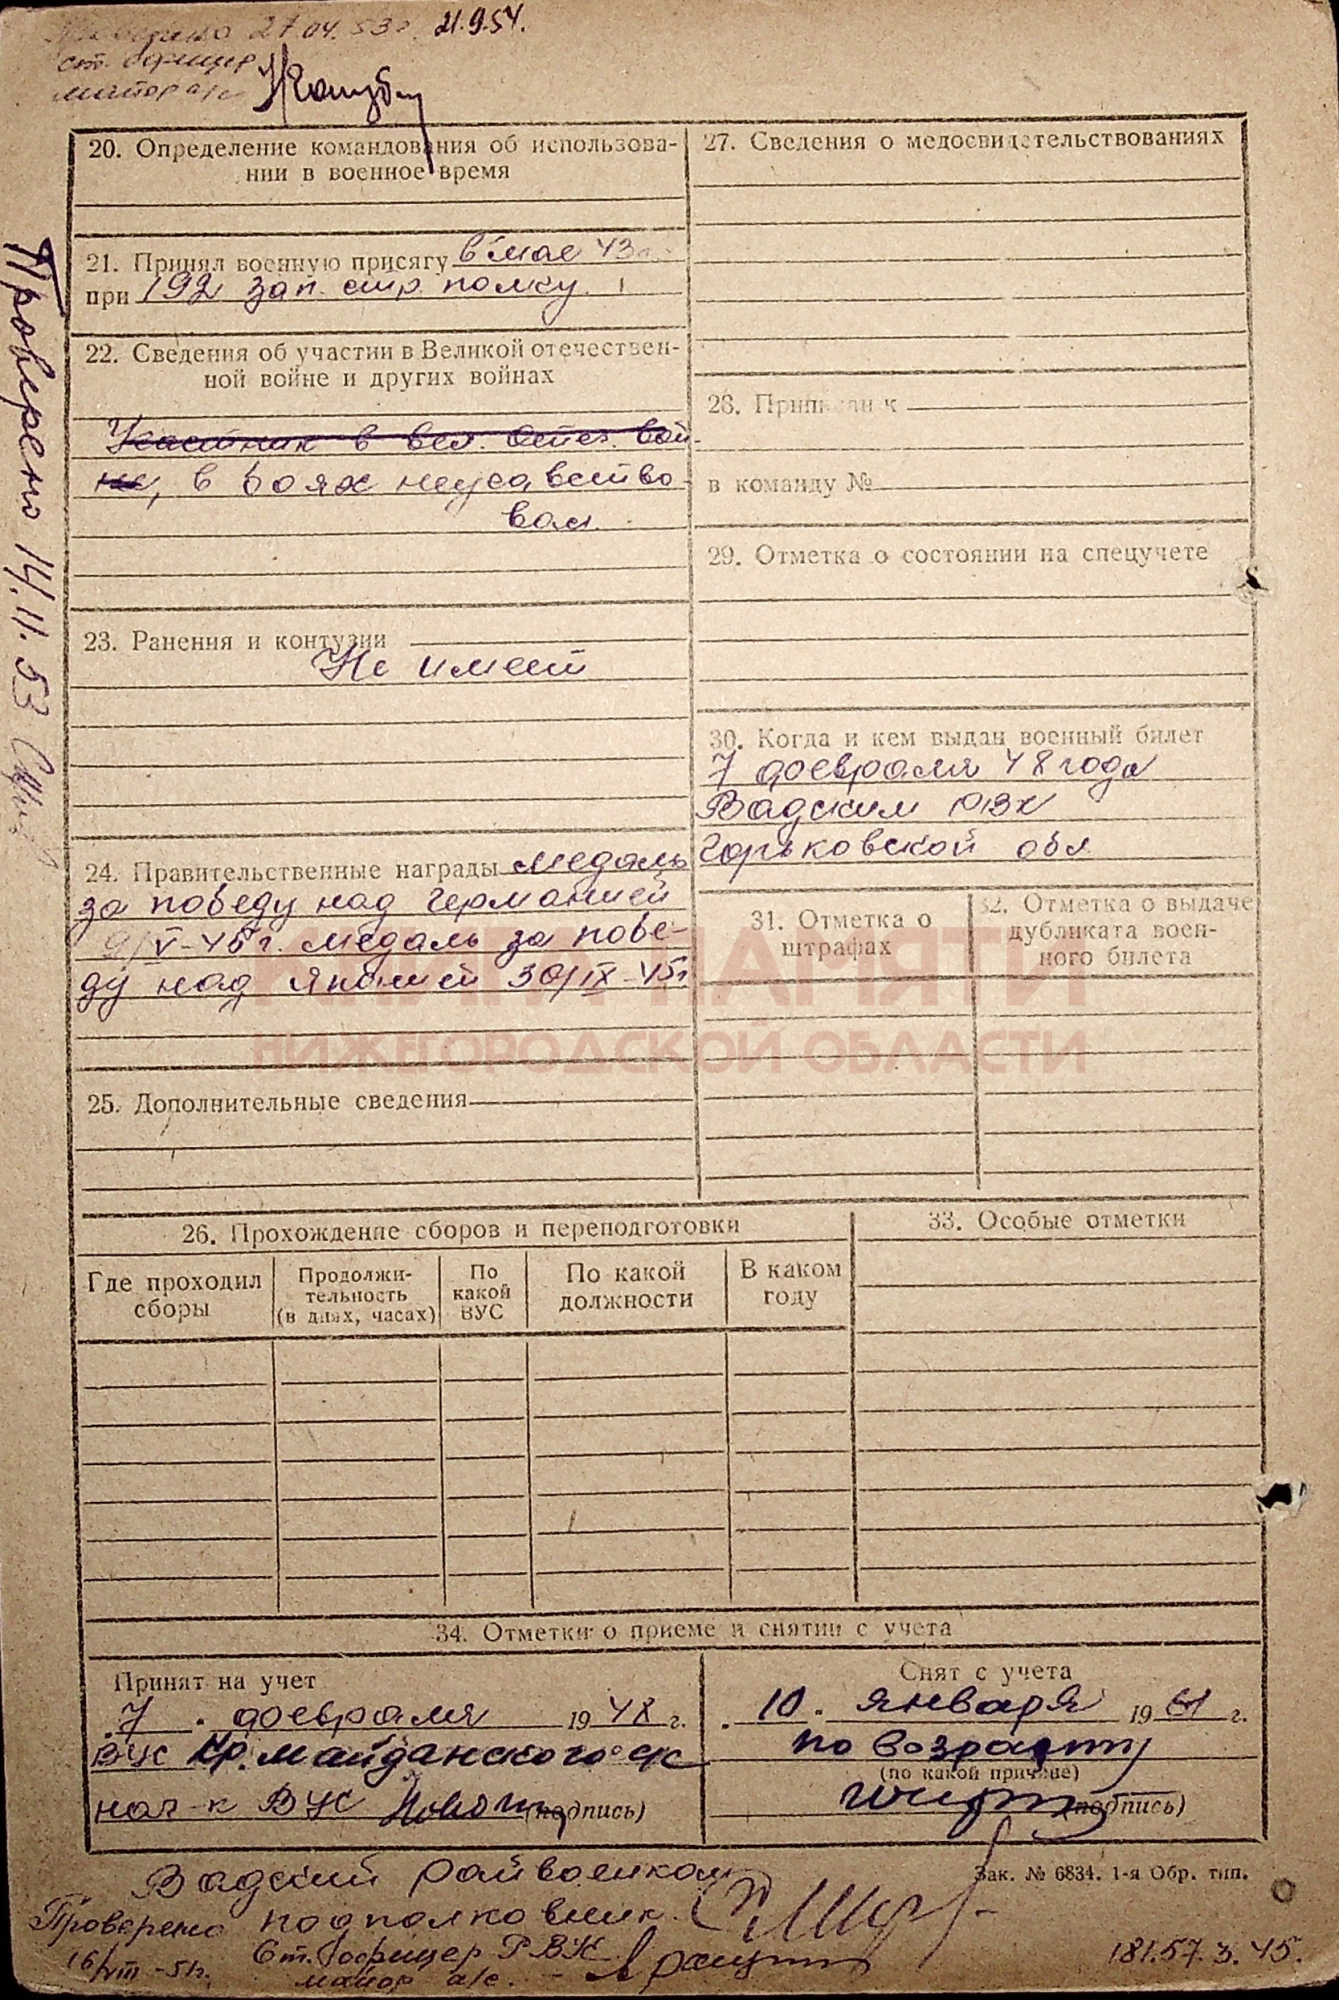 Проверено 27.04.53г. 21.9.54.
ст. офицер
майор а/с
Проверено 14.11.53
20. Определение командования об использова-
нии в военное время
21. Принял военную присягу в мае 43
при 192 зап. стр. полку
22. Сведения об участии в Великой отечествен-
ной войне и других войнах
Участник в вел. отеч. вой-
не, в боях неучавство
вал.
23. Ранения и контузии
Не имеет
24. Правительственные награды медаль
за победу над Германией
9/V-45г. медаль за побе-
ду над Японией 30/IX-45г
25. Дополнительные сведения
27. Сведения о медосвидетельствованиях
28. Приписан к
в команду №
29. Отметка о состоянии на спецучете
30. Когда и кем выдан военный билет
7 февраля 48 года
Вадским РВК
Горьковской обл
31. Отметка о
штрафах
32. Отметка о выдаче
дубликата воен-
ного билета
КНИГА ПАМЯТИ
НИЖЕГОРОДСКОЙ ОБЛАСТИ
26. Прохождение сборов и переподготовки
Где проходил
сборы
Продолжи-
тельность
(в днях, часах)
По
какой
ВУС
По какой
должности
В каком
году
33. Особые отметки
34. Отметки о приеме и снятии с учета
Принят на учет
7. февраля 1948 г.
ВУС Кр. майданского с/с
нач-к ВУС (подпись)
Снят с учета
10. января 1961 г.
по возрасту
(по какой причине)
(подпись)
Зак. № 6834. 1-я Обр. тип.
Вадский райвоенком
Проверено подполковник
16/VIII-51г. Ст. офицер РВК
майор а/с.
181.57.3.45.